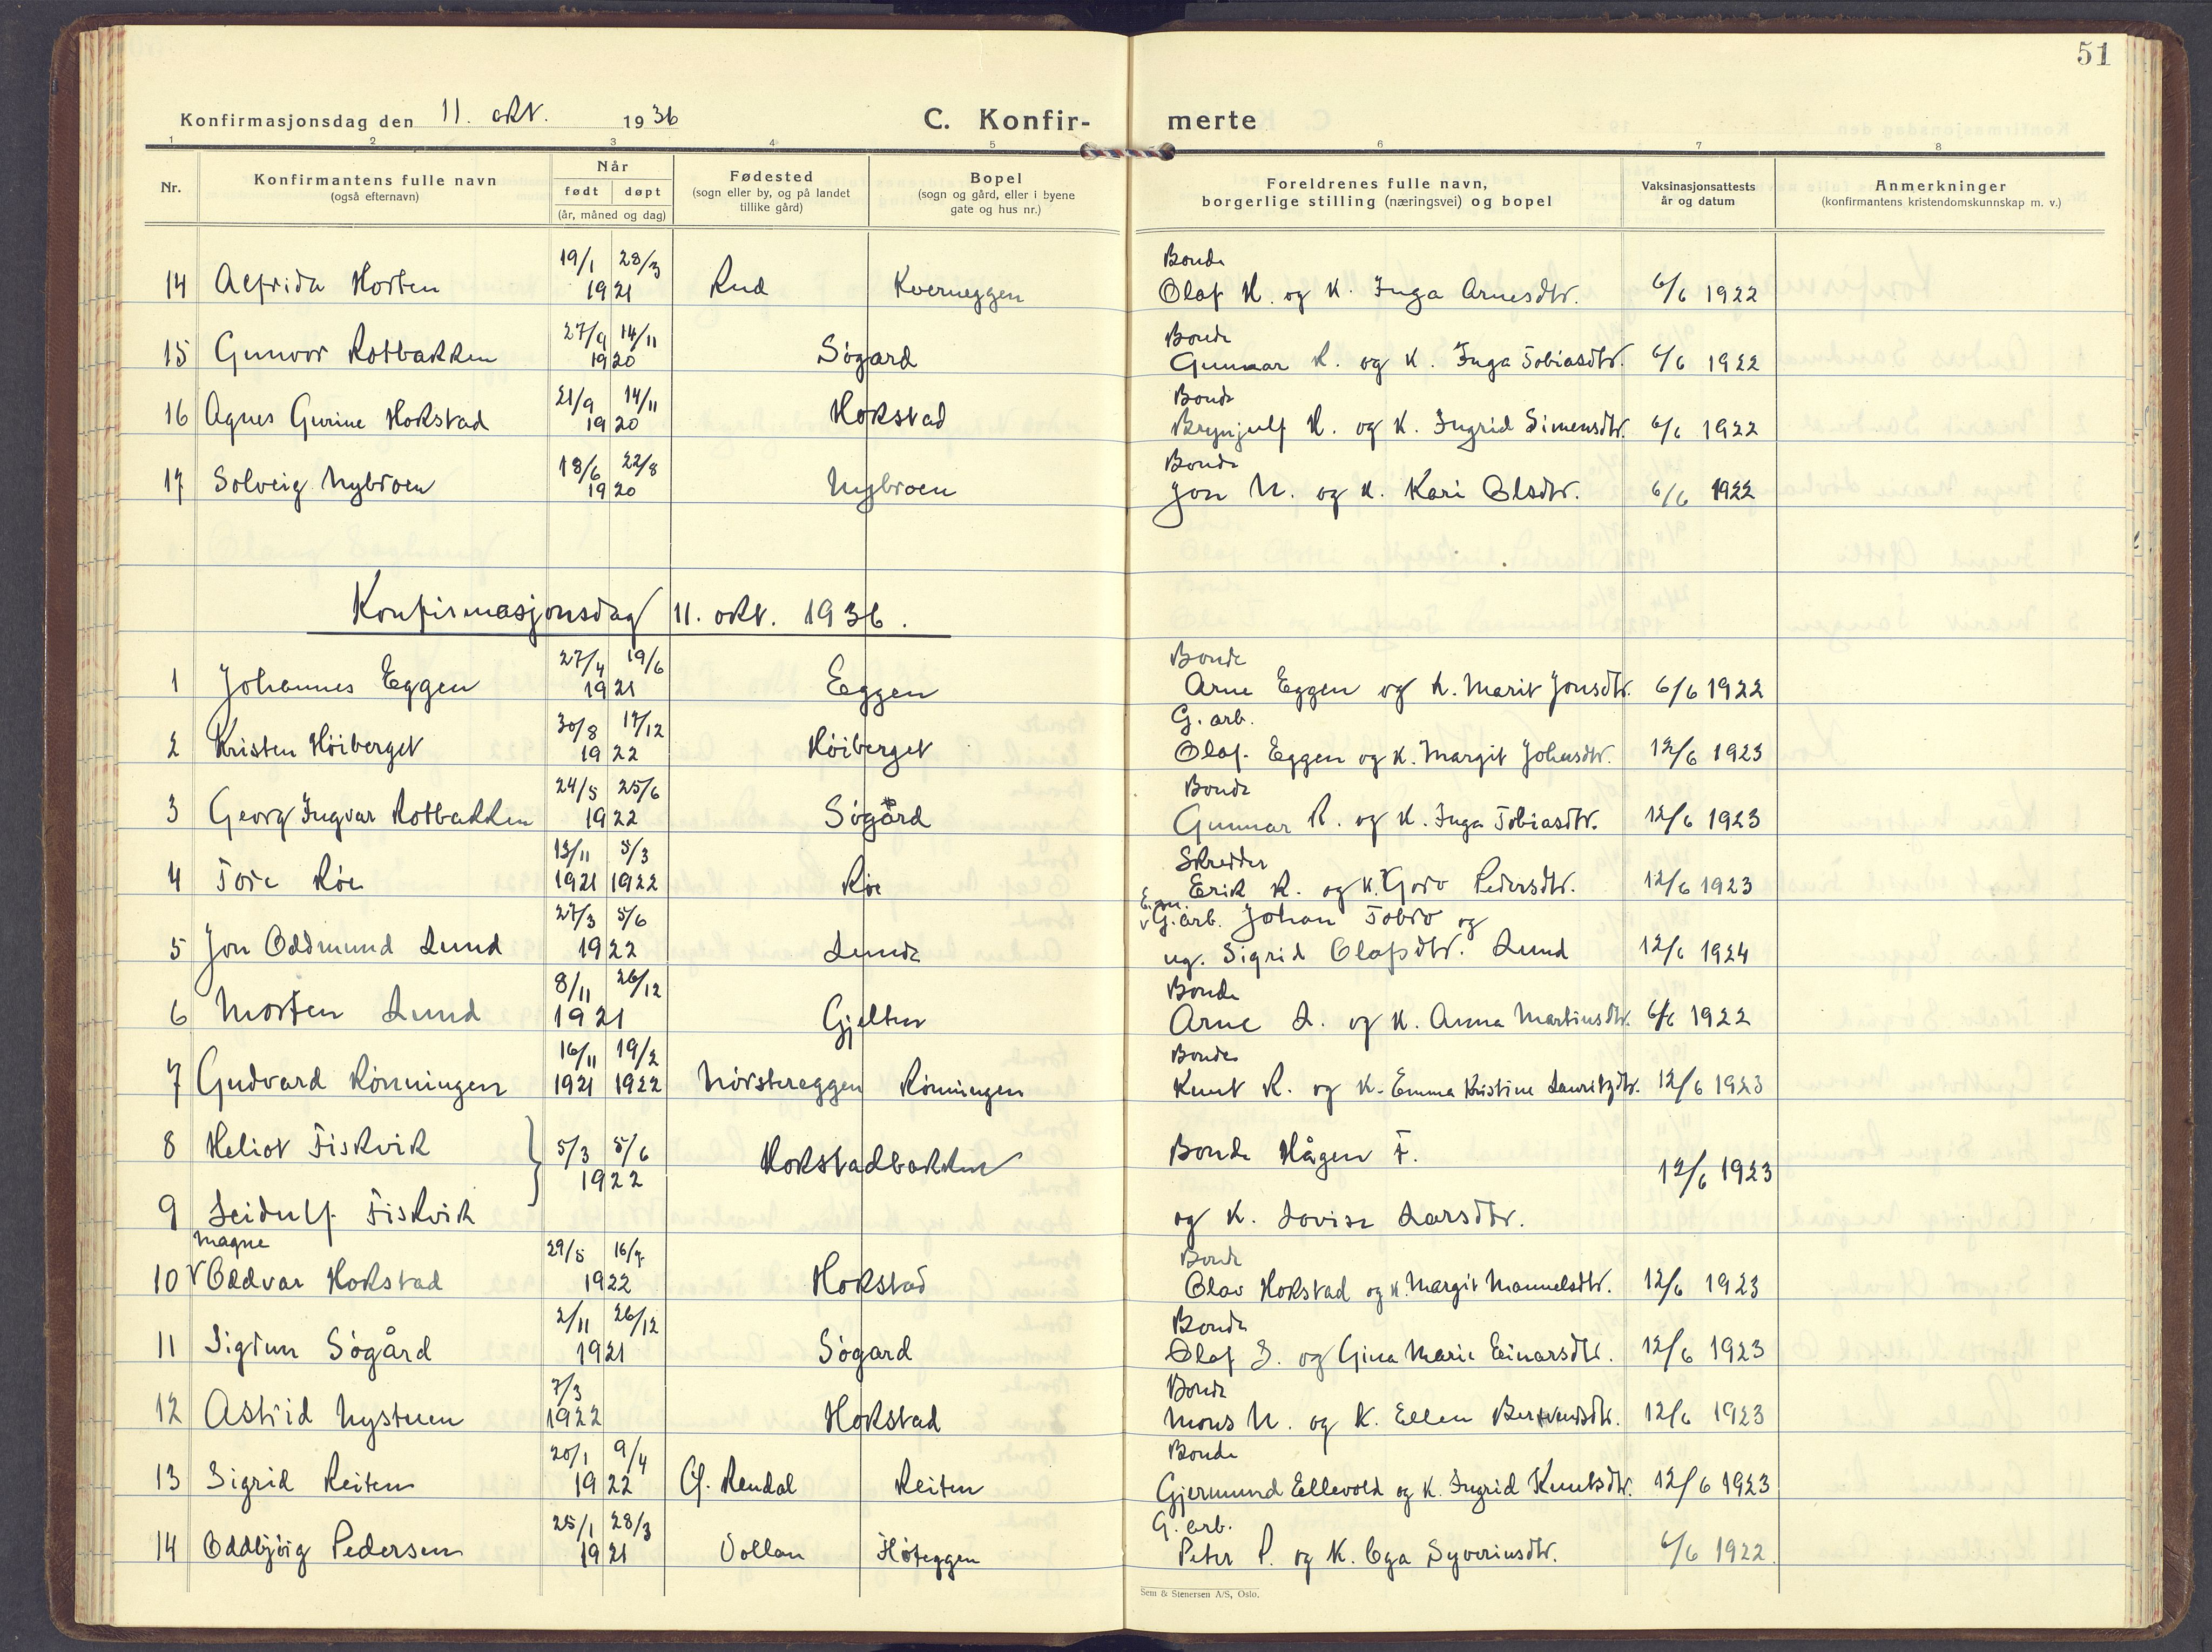 51
Konfirmasjonsdag den 11. okt. 1936 C. Konfir- merte
1 2 3 4 5 6 7 8
Nr. Konfirmantens fulle navn (også efternavn) Når født døpt (år, måned og dag) Fødested (sogn eller by, og på landet tillike gård) Bopel (sogn og gård, eller i byene gate og hus nr.) Foreldrenes fulle navn, borgerlige stilling (næringsvei) og bopel Vaksinasjonsattests år og datum Anmerkninger (konfirmantens kristendomskunnskap m. v.)
19/1 28/3 Bonde
14 Alfrida Horten 1921 Rud Kverneggen Olaf H. og K. Inga Arnesdtr. 6/6 1922
27/9 14/11 Bonde
15 Gunvor Rotbakken 1920 Søgard Gunnar R. og K. Inga Tobiasdtr. 6/6 1922
21/9 14/11 Bonde
16 Agnes Gurine Hokstad 1920 Hokstad Brynjulf H. og K. Ingrid Simensdtr. 6/6 1922
18/6 22/8 Bonde
17 Solveig Nybroen 1920 Nybroen Jon N. og K. Kari Olsdtr. 6/6 1922
Konfirmasjonsdag 11. okt. 1936.
27/4 19/6 Bonde
1 Johannes Eggen 1921 Eggen Arne Eggen og K. Marit Jonsdtr. 6/6 1922
30/8 17/12 G. arb.
2 Kristen Høiberget 1922 Høiberget Olaf Eggen og K. Margit Johnsdtr. 12/6 1923
24/5 25/6 Bonde
3 Georg Ingvar Rotbakken 1922 Søgård Gunnar R. og K. Inga Tobiasdtr. 12/6 1923
13/11 5/3 Skredder
4 Tore Røe 1921 1922 Røe Erik R. og K. Goro Pedersdtr. 12/6 1923
27/3 5/6 G. arb. Johan Tobro og
5 Jon Oddmund Lund 1922 Lunde ug. Sigrid Olafsdtr. Lund 12/6 1924
8/11 26/12 Bonde
6 Morten Lund 1921 Gjelten Arne L. og K. Anna Martinsdtr. 6/6 1922
16/11 19/2 Bonde
7 Gudvard Rønningen 1921 1922 Nørstereggen Rønningen Knut R. og K. Emma Kristine Lauritzdtr. 12/6 1923
8 Heliot Fiskvik 5/3 5/6 1922 Hokstadbakken Bonde Hågen F. 12/6 1923
9 Leidulf Fiskvik og K. Lovise Larsdtr.
Magne 29/5 16/7 Bonde
10 √ Oddvar Hokstad 1922 Hokstad Olav Hokstad og K. Margit Manuelsdtr. 12/6 1923
2/11 26/12 Bonde
11 Sigrun Søgård 1921 Søgard Olaf S. og Gina Marie Einarsdtr. 12/6 1923
7/3 Bonde
12 Astrid Nystuen 1922 Hokstad Mons N. og K. Ellen 12/6 1923
20/1 9/4 Bonde
13 Sigrid Reiten 1922 Rendal Reiten Gjermund Ellevold og K. Ingrid Knutsdtr. 12/6 1923
25/1 28/3 G. arb.
14 Oddbjørg Pedersen 1921 Vollan Høteggen Peter P. og K. Syverinsdtr. 6/6 1922.
Sem & Stenersen A/S, Oslo.